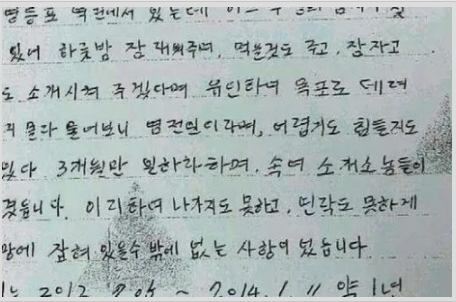 영등포 역전에서 있는데
있어 하룻밤 잠 재워주며, 먹는것도 주고, 잠자고
도 소개시켜 주겠다며 유인하여 목포로 데려
지 몰라 물어보니 염전일이라며, 어렵지도 힘들지도
있다 3개월만 일하라하며. 속여 소개소놈들이
졌읍니다. 이리하여 나가지도 못하고, 연락도 못하게
망에 잡혀 있을수 밖에 없는 사항이 었읍니다
는 2012 ~ 2014. 1 // 약 1년